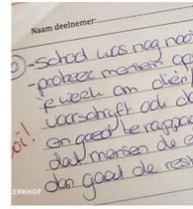 Naam deelnemer:
- schod was nog nooi
- probeer mensen op
je week om dien
voorschrift ook d
en goed
dat mensen de e
dan goed de res
oi!
ERKHOF